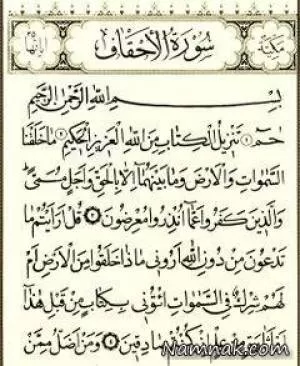 مكية سورة الأحقاف آياتها ٣٥
بسم الله الرحمن الرحيم
حم ۝١ تنزيل الكتاب من الله العزيز الحكيم ۝٢ ما خلقنا
السموات والأرض وما بينهما إلا بالحق وأجل مسمى
والذين كفروا عما أنذروا معرضون ۝٣ قل أرأيتم ما
تدعون من دون الله أروني ماذا خلقوا من الأرض أم
لهم شرك في السموات ائتوني بكتاب من قبل هذا
أو أثارة من علم إن كنتم صادقين ۝٤ ومن أضل ممن
Namnak.com